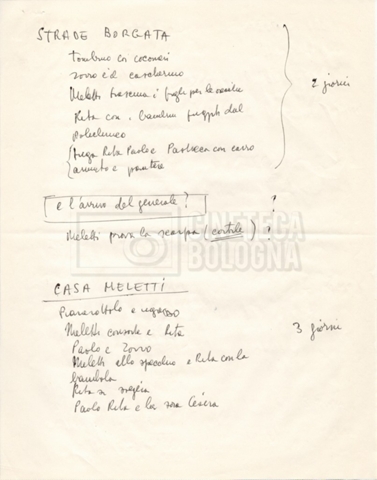 STRADE BORGATA
Tombino coi cocomeri
Zorro e il carcherino
Meletti trascina i figli per le vecchie
Rita con i bambini fuggiti dal
policlinico
fuga Rita Paolo e Pacheca con carro
armato e pantere
2 giorni
e l'arrivo del generale? ?
Meletti prova la scarpa (cortile) ?
CINETECA
BOLOGNA
CASA MELETTI
e ragazzo
Meletti consorte e Rita
Paolo e Zorro
Meletti allo specchio e Rita con la
bambola
Rita si
Paolo Rita e la sora Cesira
3 giorni